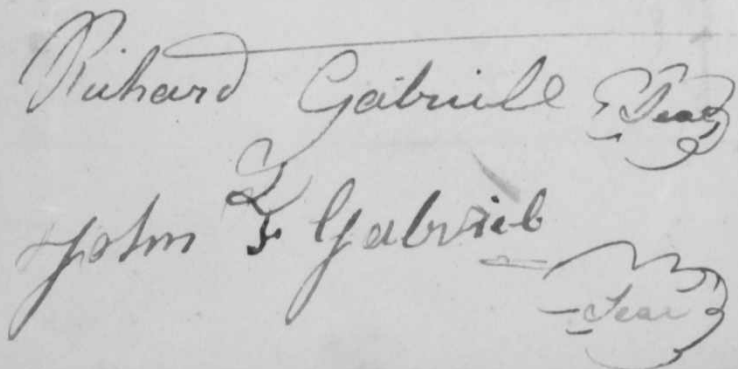 Richard Gabriell Seal
John F Gabriel
Seal